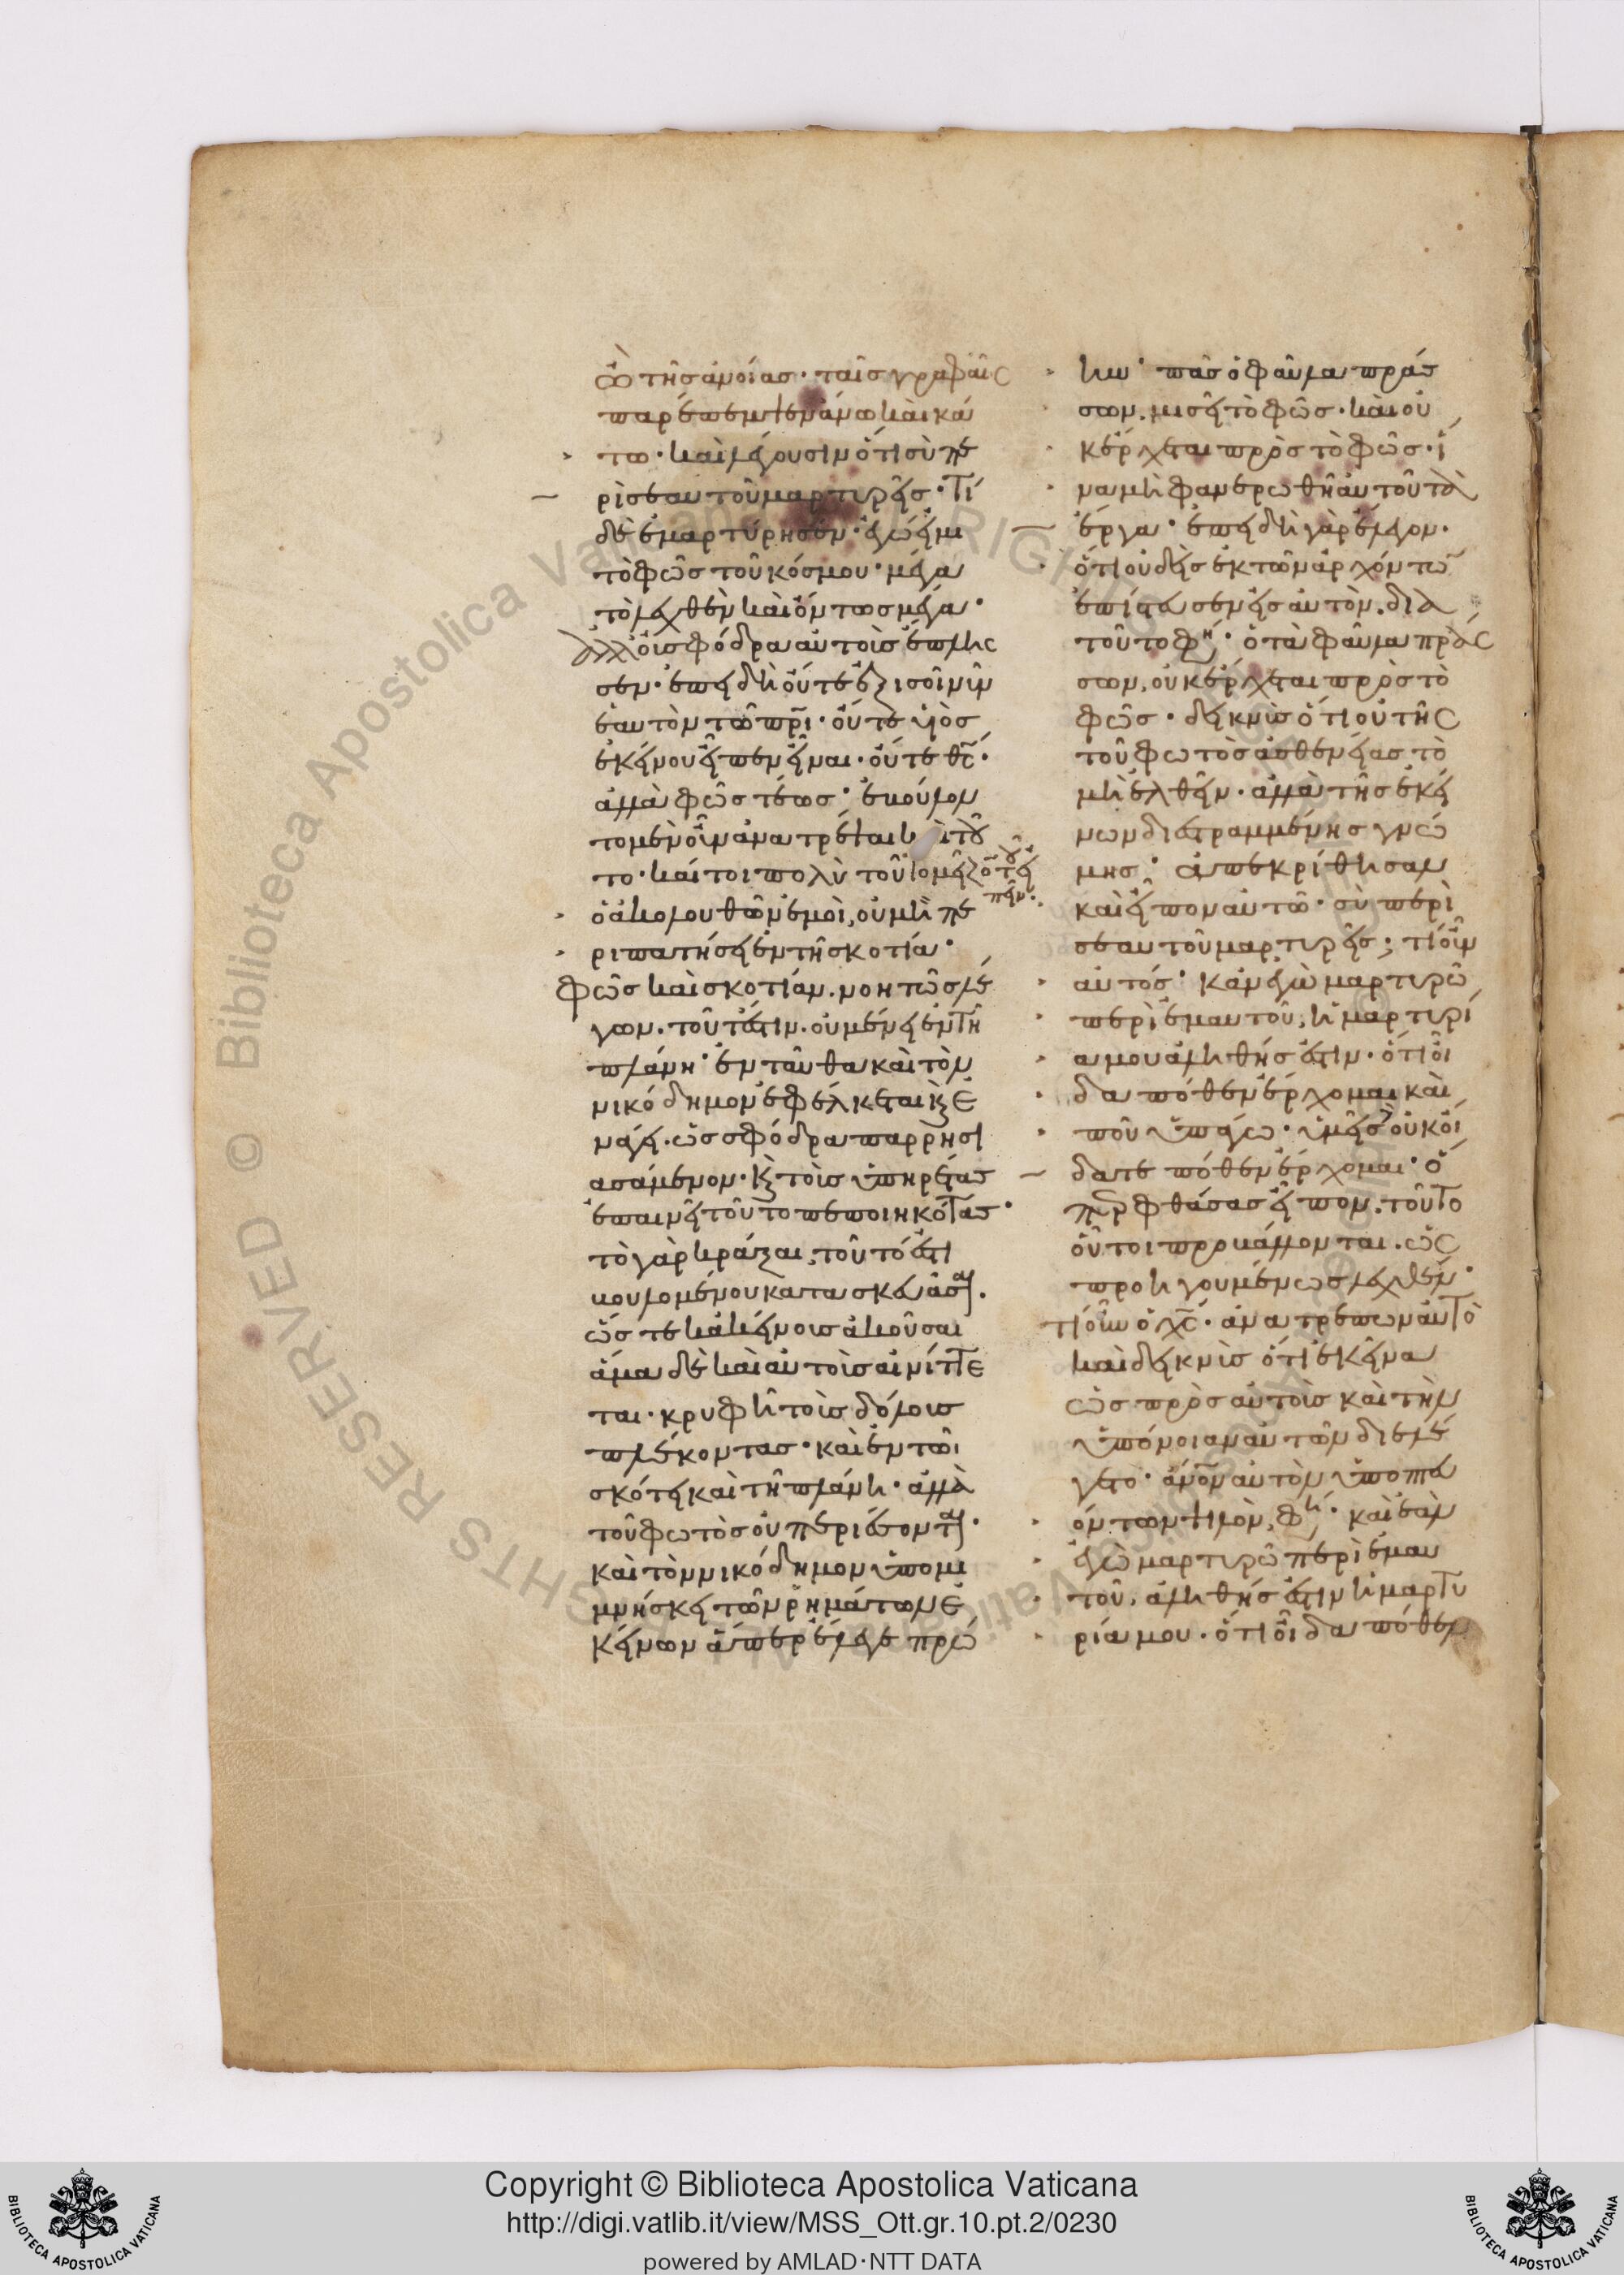 ὢ τῆς ἀνοίας· ταῖς γραφαῖς
παρέπεμπεν ἄνω καὶ κά
τω· καὶ λέγουσιν ὅτι σὺ πε
ρὶ σεαυτοῦ μαρτυρεῖς· Τί
δὲ ἐμαρτύρησεν· ἐγώ εἰμι
τὸ φῶς τοῦ κόσμου· μέγα
τὸ λεχθὲν καὶ ὄντως μέγα·
ἀλλ' οὐ σφόδρα αὐτοὺς ἔπληξ
σεν· ἐπειδὴ οὔτε ἐξισοῖ νῦν
ἑαυτὸν τῶ πρι· οὔτε υἱὸς
ἐκείνου εἶπεν εἶναι· οὔτε θς·
ἀλλὰ φῶς τέως· ἐβούλον
το μὲν οὖν ἀνατρέψαι καὶ τοῦ
το· καίτοι πολὺ τοῦτο μεῖζον τοῦ εἰ
πεῖν·
ὁ ἀκολουθῶν ἐμοὶ, οὐ μὴ πε
ριπατήσει ἐν τῆ σκοτία·
φῶς καὶ σκοτίαν νοητῶς λέ
γων· τουτέστιν· οὐ μένει ἐν τῆ
πλάνη· ἐνταῦθα καὶ τὸν
νικόδημον ἐφέλκεται κ ἐ
νάγει· ὡς σφόδρα παρρησι
ασάμενον· κ τοὺς ὑπηρέτας
ἐπαινεῖ τοῦτο πεποιηκότας·
τὸ γὰρ κράξαι, τοῦτό ἐστι
βουλομένου κατασκευάσαι·
ὥστε κἀκείνους ἀκοῦσαι
ἅμα δὲ καὶ αὐτοὺς αἰνίττε
ται· κρυφῆ τοὺς δόλους
πλέκοντας· καὶ ἐν τῶι
σκότει καὶ τῆ πλάνη· ἀλλὰ
τοῦ φωτὸς οὐ περιέσονται·
καὶ τὸν νικόδημον ὑπομι
μνήσκει τῶν ῥημάτων ἐ
κείνων ἅπερ ἔλεγε πρώ
ην· πᾶς ὁ φαῦλα πράσ
σων, μισεῖ τὸ φῶς· καὶ οὐ
κ ἔρχεται πρὸς τὸ φῶς· ἵ
να μὴ φανερωθῆ αὐτοῦ τὰ
ἔργα· ἐπειδὴ γὰρ ἔλεγον·
ὅτι οὐδεὶς ἐκ τῶν ἀρχόντω
ἐπίστευσεν εἰς αὐτὸν, διὰ
τοῦτο φη· ὁ τὰ φαῦλα πράσ
σων, οὐκ ἔρχεται πρὸς τὸ
φῶς· δεικνὺς ὅτι οὐ τῆς
τοῦ φωτὸς ἀσθενείας τὸ
μὴ ἐλθεῖν· ἀλλὰ τῆς ἐκεί
νων διεστραμμένης γνώ
μης· ἀπεκρίθησαν
καὶ εἶπον αὐτῶ· σὺ περὶ
σεαυτοῦ μαρτυρεῖς; τί οὖν
αὐτός· κἂν ἐγὼ μαρτυρῶ
περὶ ἐμαυτοῦ, ἡ μαρτυρί
α μου ἀληθής ἐστιν· ὅτι οἶ
δα πόθεν ἔρχομαι καὶ
ποῦ ὑπάγω· ὑμεῖς οὐκ οἴ
δατε πόθεν ἔρχομαι· ὅ
περ φθάσας εἶπον, τοῦτο
οὗτοι προβάλλονται, ὡς
προηγουμένως λεχθέν·
τί οὖν ὁ χς· ἀνατρέπων αὐτὸ
καὶ δεικνὺς ὅτι ἐκεῖνα
ὡς πρὸς αὐτοὺς καὶ τὴν
ὑπόνοιαν αὐτῶν διελέ
γετο· ἀνον αὐτὸν ὑποπτευ
όντων ψιλὸν, φη· καὶ ἐὰν
ἐγὼ μαρτυρῶ περὶ ἐμαυ
τοῦ, ἀληθής ἐστιν ἡ μαρτυ
ρία μου· ὅτι οἶδα πόθεν
Copyright © Biblioteca Apostolica Vaticana
http://digi.vatlib.it/view/MSS_Ott.gr.10.pt.2/0230
powered by AMLAD·NTT DATA